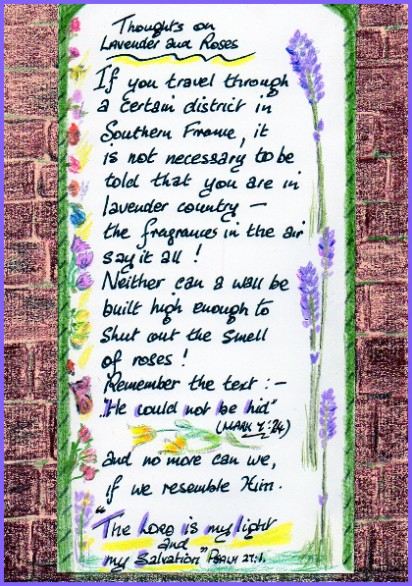 Thoughts on
Lavender and Roses
If you travel through
a certain district in
Southern France, it
is not necessary to be
told that you are in
lavender country –
the fragrances in the air
say it all !
Neither can a wall be
built high enough to
shut out the smell
of roses !
Remember the text :–
"He could not be hid"
(MARK 7:24)
and no more can we,
if we resemble Him.
"The Lord is my light
and
my Salvation" PSALM 27:1.